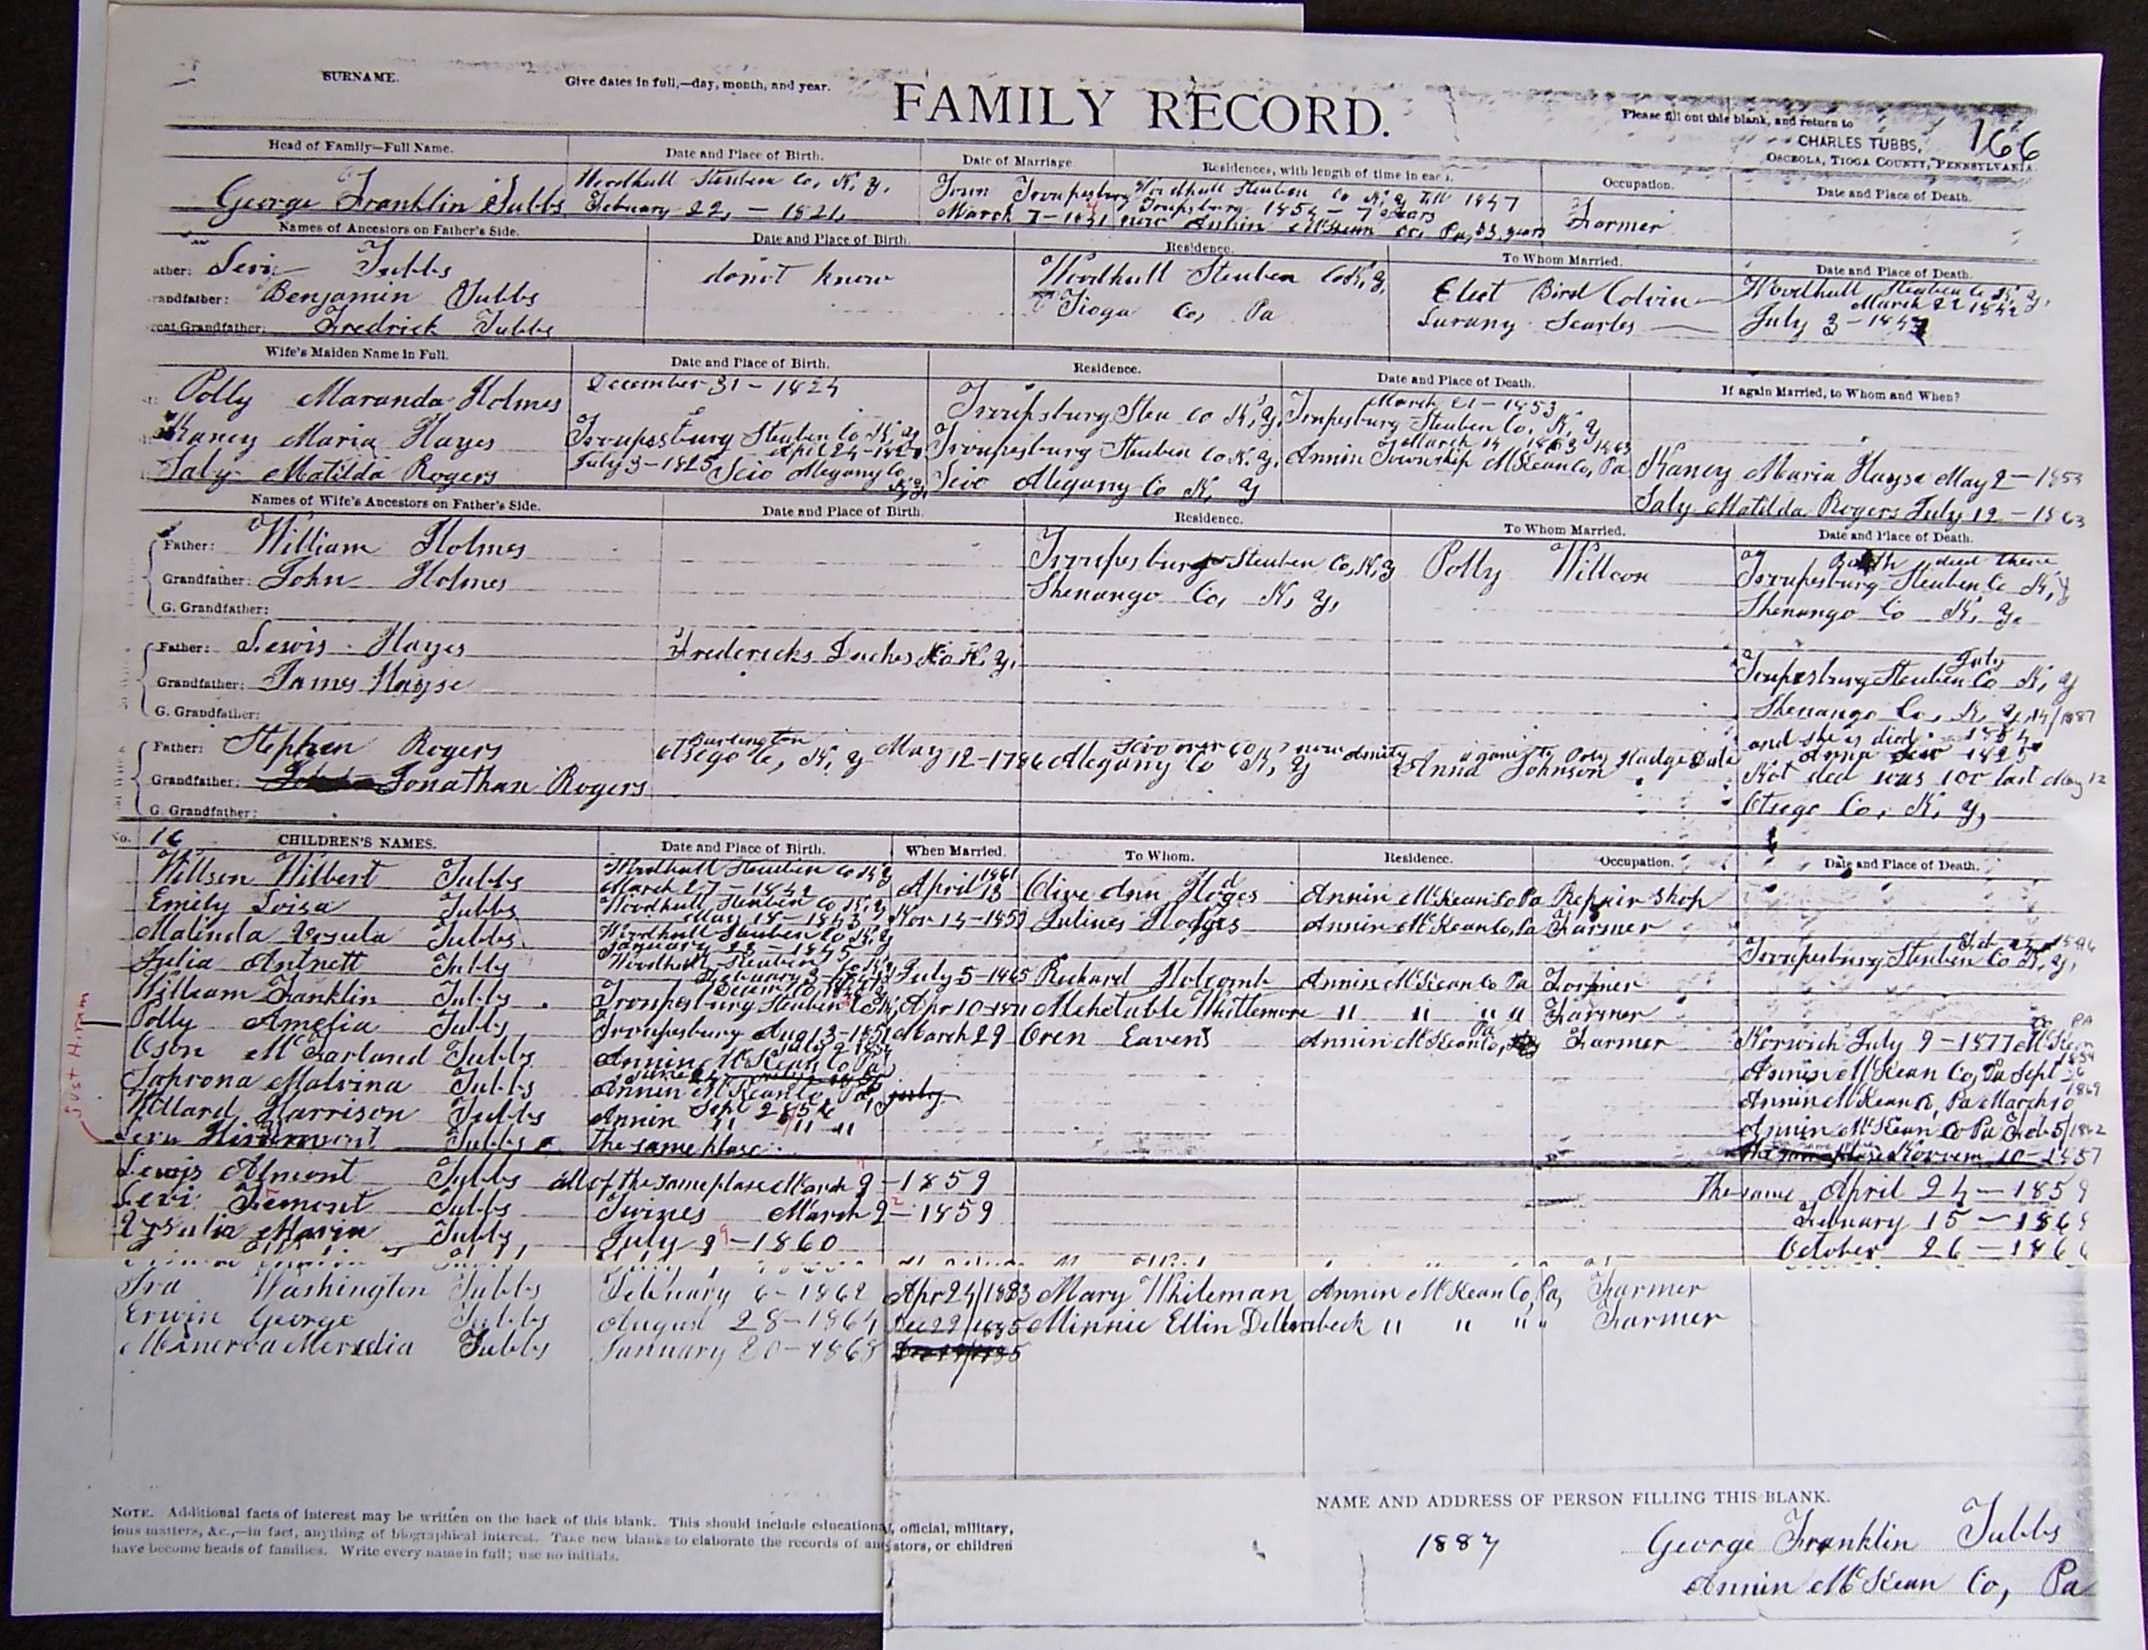 SURNAME.
Give dates in full,—day, month, and year.
FAMILY RECORD.
Please fill out this blank, and return to
CHARLES TUBBS,
OSCEOLA, TIOGA COUNTY, PENNSYLVANIA.
166
Head of Family—Full Name. Date and Place of Birth. Date of Marriage. Residences, with length of time in each. Occupation. Date and Place of Death.
Woodhull Steuben Co, N, Y, Town Troupsburg Woodhull Steuben Co N, Y Till 1847
George Franklin Tubbs February 22, — 1821 March 7-1841 Troupsburg 1854 — 7 years Farmer
now Annin McKean Co, Pa, 33 years
Names of Ancestors on Father's Side. Date and Place of Birth. Residence. To Whom Married. Date and Place of Death.
ather: Levi Tubbs do not know Woodhull Steuben Co N, Y, Elect Bird Colvin Woodhull Steuben Co N, Y,
March 22 1842
randfather: Benjamin Tubbs Tioga Co, Pa Lurany Searles July 3 — 184
reat Grandfather: Fredrick Tubbs
Wife's Maiden Name in Full. Date and Place of Birth. Residence. Date and Place of Death. If again Married, to Whom and When?
Polly Maranda Holmes December 31 — 1824 Troupsburg Steu Co N, Y, March 21 — 1853
Troupsburg Steuben Co. N, Y
Nancy Maria Hayes Troupssburg Steuben Co N, Y Troupsburg Steuben Co N. Y. March 14 1863 1863
Annin Township McKean Co, Pa Nancy Maria Hayse May 2 — 1853
Saly Matilda Rogers July 3 — 1825 Scio Alegany Co N, Y, Scio Alegany Co N, Y Saly Matilda Rogers July 12 — 1863
Names of Wife's Ancestors on Father's Side. Date and Place of Birth. Residence. To Whom Married. Date and Place of Death.
Both died there
Father: William Holmes Troupsburg Steuben Co, N, Y Polly Willcox Troupsburg Steuben Co N, Y
Grandfather: John Holmes Shenango Co, N, Y, Shenango Co N, Y.
G. Grandfather:
July
Father: Lewis Hayes Fredericks Duches Co N, Y. Troupsburg Steuben Co N, Y
Grandfather: James Hayse Shenango Co, N, Y, 14/1887
G. Grandfather: and she is died 1884
Burlington
Father: Stephen Rogers Otsego Co, N, Y May 12-1786 Alegany Co N, Y Anna Johnson Not ded was 100 last May 12
Grandfather: Jonathan Rogers Otsego Co, N, Y,
G. Grandfather:
No. 16 CHILDREN'S NAMES. Date and Place of Birth. When Married. To Whom. Residence. Occupation. Date and Place of Death.
Willsen Wilbert Tubbs Woodhull Steuben Co N, Y March 27 — 1842 April 18 1861 Olive Ann Hodges Annin McKean Co Pa Repair Shop
Emily Loisa Tubbs Woodhull Steuben Co N, Y May 18 — 1843 Nov 14 — 1859 Julius Hodges Annin McKean Co, Pa Farmer
Malinda Ursula Tubbs Woodhull Steuben Co N, Y January 22 — 1845 Troupsburg Steuben Co N, Y,
Julia Antnett Tubbs Woodhull Steuben July 5 — 1865 Richard Holcomb Annin McKean Co Pa Farmer
William Franklin Tubbs Troupsburg Steuben Co N, Y Apr 10 Mehetable Whittemore " " " " Farmer
Polly Amelia Tubbs Troupsburg Aug 13 — 1851 March 29 Oren Eavens Annin McKean Co, Pa Farmer Norwich July 9 — 1877 McKean PA
Oson McFarland Tubbs Annin McKean Co Pa Annin McKean Co, Pa Sept
Saprona Malvina Tubbs Annin McKean Co Pa Annin McKean Co, Pa March 10 1869
Willard Harrison Tubbs Annin Sept 28 " " Annin McKean Co Pa Feb 5/1862
Just Hiram
Tubbs The same place 10 — 1857
Lewis Almont Tubbs all of the same place March 9 — 1859 The same April 24 — 1859
Levi Fremont Tubbs Twines March 9 — 1859 February 15 — 186
Ursulia Maria Tubbs July 9 — 1860 October 26 — 186
Ira Washington Tubbs February 6 — 1862 Apr 24/1883 Mary Whiteman Annin McKean Co, Pa, Farmer
Erwin George Tubbs August 28 — 1864 Dec 29/1885 Minnie Ellin Dellenbeck " " " " Farmer
Minerva Meredia Tubbs January 20 — 1868
NOTE. Additional facts of interest may be written on the back of this blank. This should include educational, official, military,
ious matters, &c.,—in fact, anything of biographical interest. Take new blanks to elaborate the records of ancestors, or children
have become heads of families. Write every name in full; use no initials.
NAME AND ADDRESS OF PERSON FILLING THIS BLANK.
1887 George Franklin Tubbs
Annin McKean Co, Pa